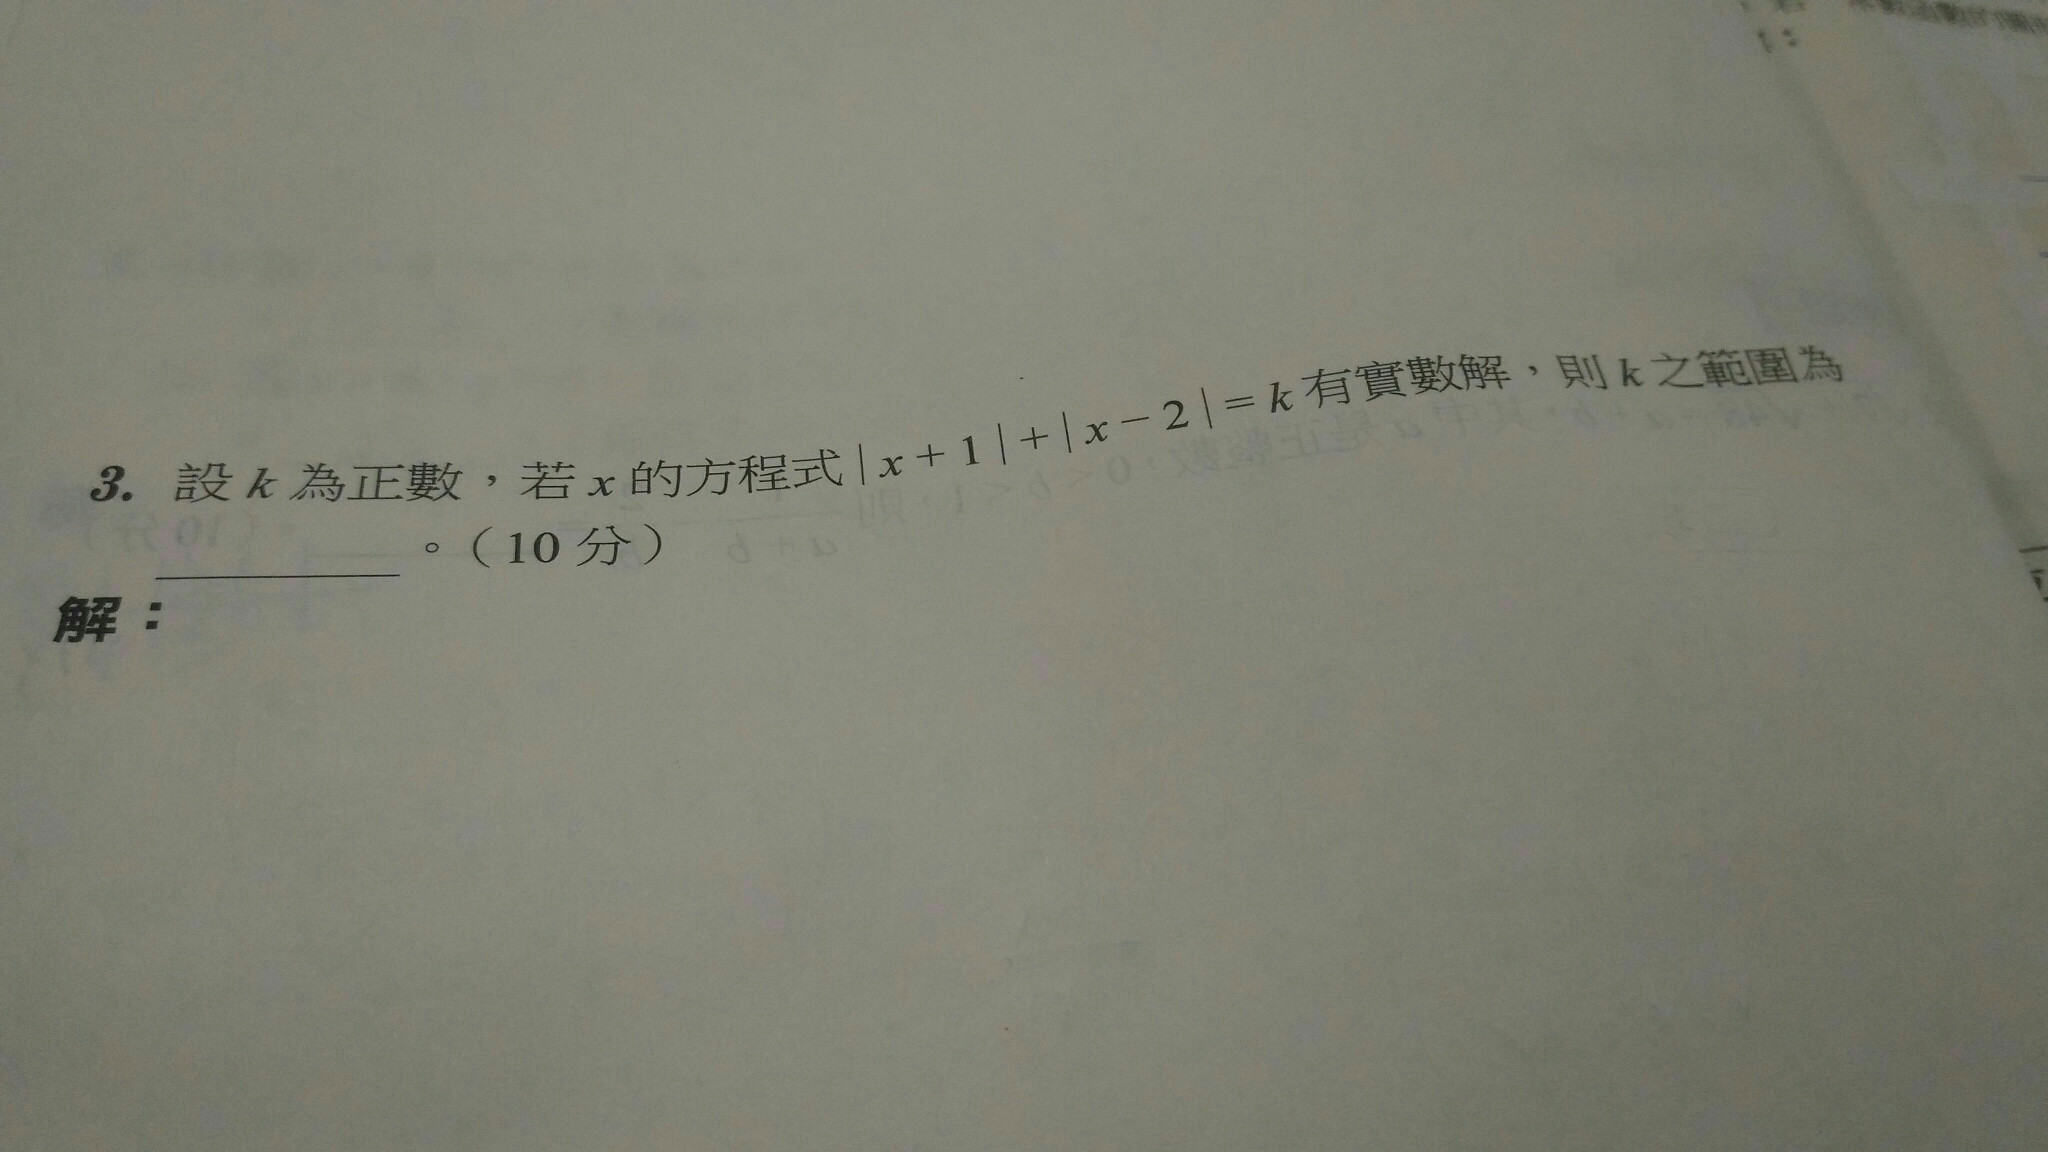 3. 設 k 為正數，若 x 的方程式 | x + 1 | + | x − 2 | = k 有實數解，則 k 之範圍為
＿＿＿＿＿。（10 分）
解：